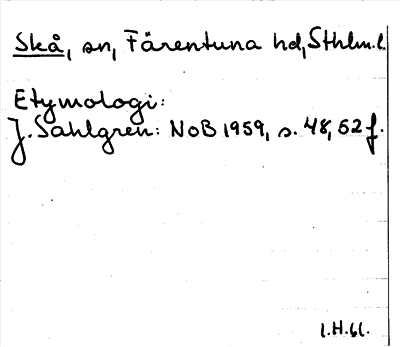 Skå, sn, Färentuna hd, Sthlm.l.
Etymologi:
J. Sahlgren: NoB 1959, s. 48, 52 f.
I.H.61.